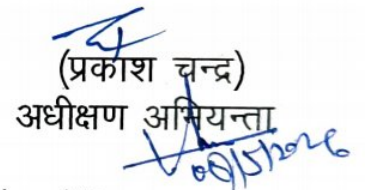 (प्रकाश चन्द्र)
अधीक्षण अभियन्ता